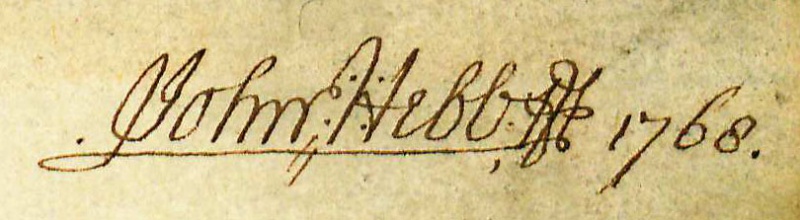 John Hebb 1768.